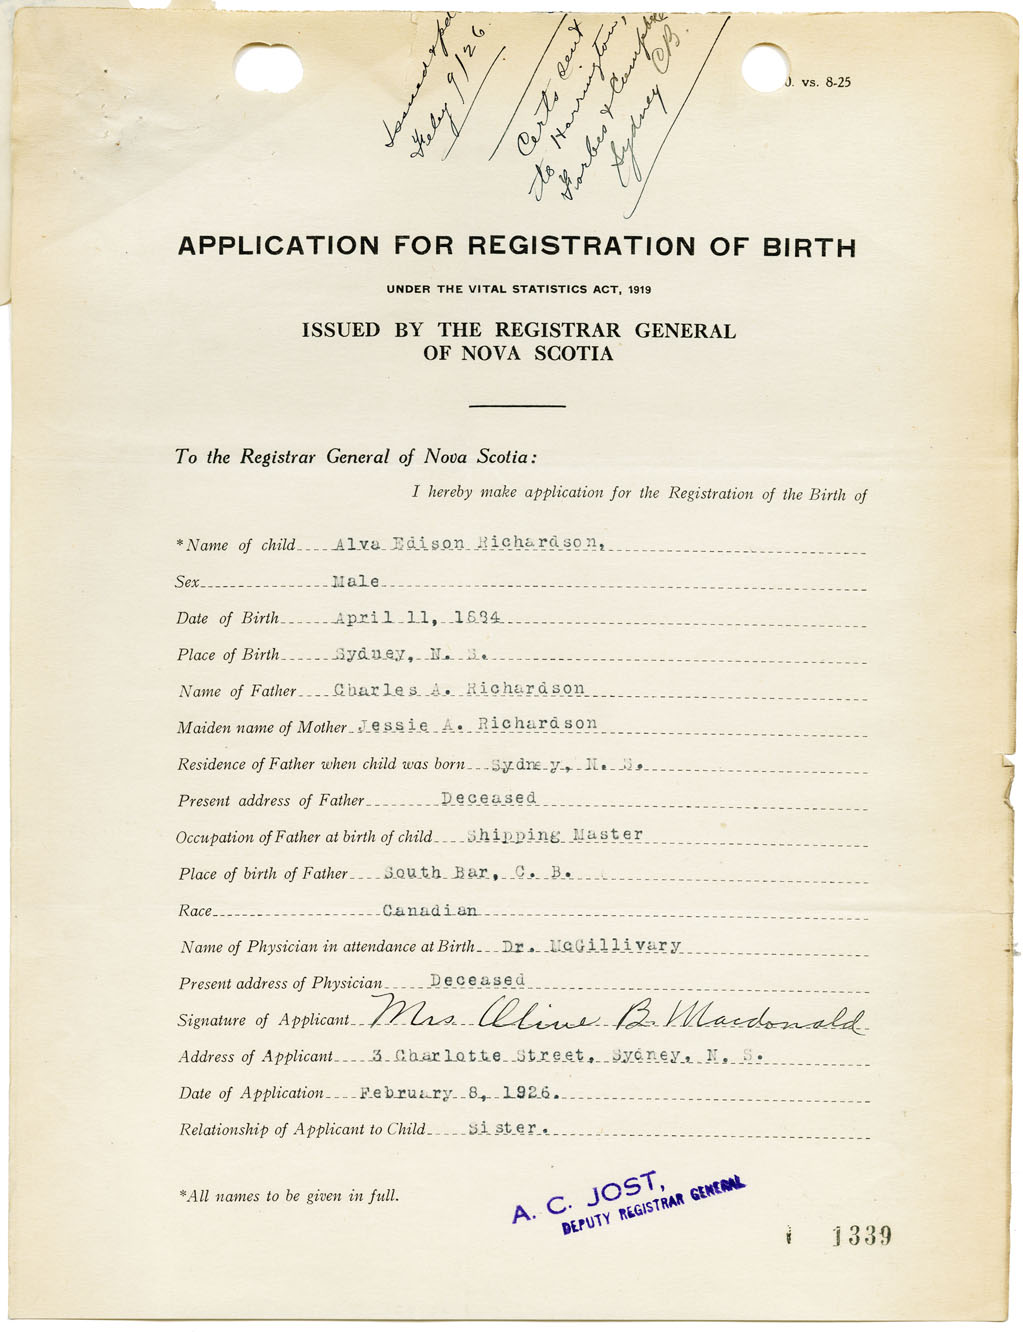 Issued & pd
Feby 9/26
Certs sent
to Harrington,
Forbes & Campbell
Sydney CB.
0. vs. 8-25
APPLICATION FOR REGISTRATION OF BIRTH
UNDER THE VITAL STATISTICS ACT, 1919
ISSUED BY THE REGISTRAR GENERAL
OF NOVA SCOTIA
To the Registrar General of Nova Scotia:
I hereby make application for the Registration of the Birth of
*Name of child Alva Edison Richardson,
Sex Male
Date of Birth April 11, 1884
Place of Birth Sydney, N. S.
Name of Father Charles A. Richardson
Maiden name of Mother Jessie A. Richardson
Residence of Father when child was born Sydney, N. S.
Present address of Father Deceased
Occupation of Father at birth of child Shipping Master
Place of birth of Father South Bar, C. B.
Race Canadian
Name of Physician in attendance at Birth Dr. McGillivary
Present address of Physician Deceased
Signature of Applicant Mrs Olive B. Macdonald
Address of Applicant 3 Charlotte Street, Sydney, N. S.
Date of Application February 8, 1926.
Relationship of Applicant to Child Sister.
*All names to be given in full.
A. C. JOST,
DEPUTY REGISTRAR GENERAL
1339